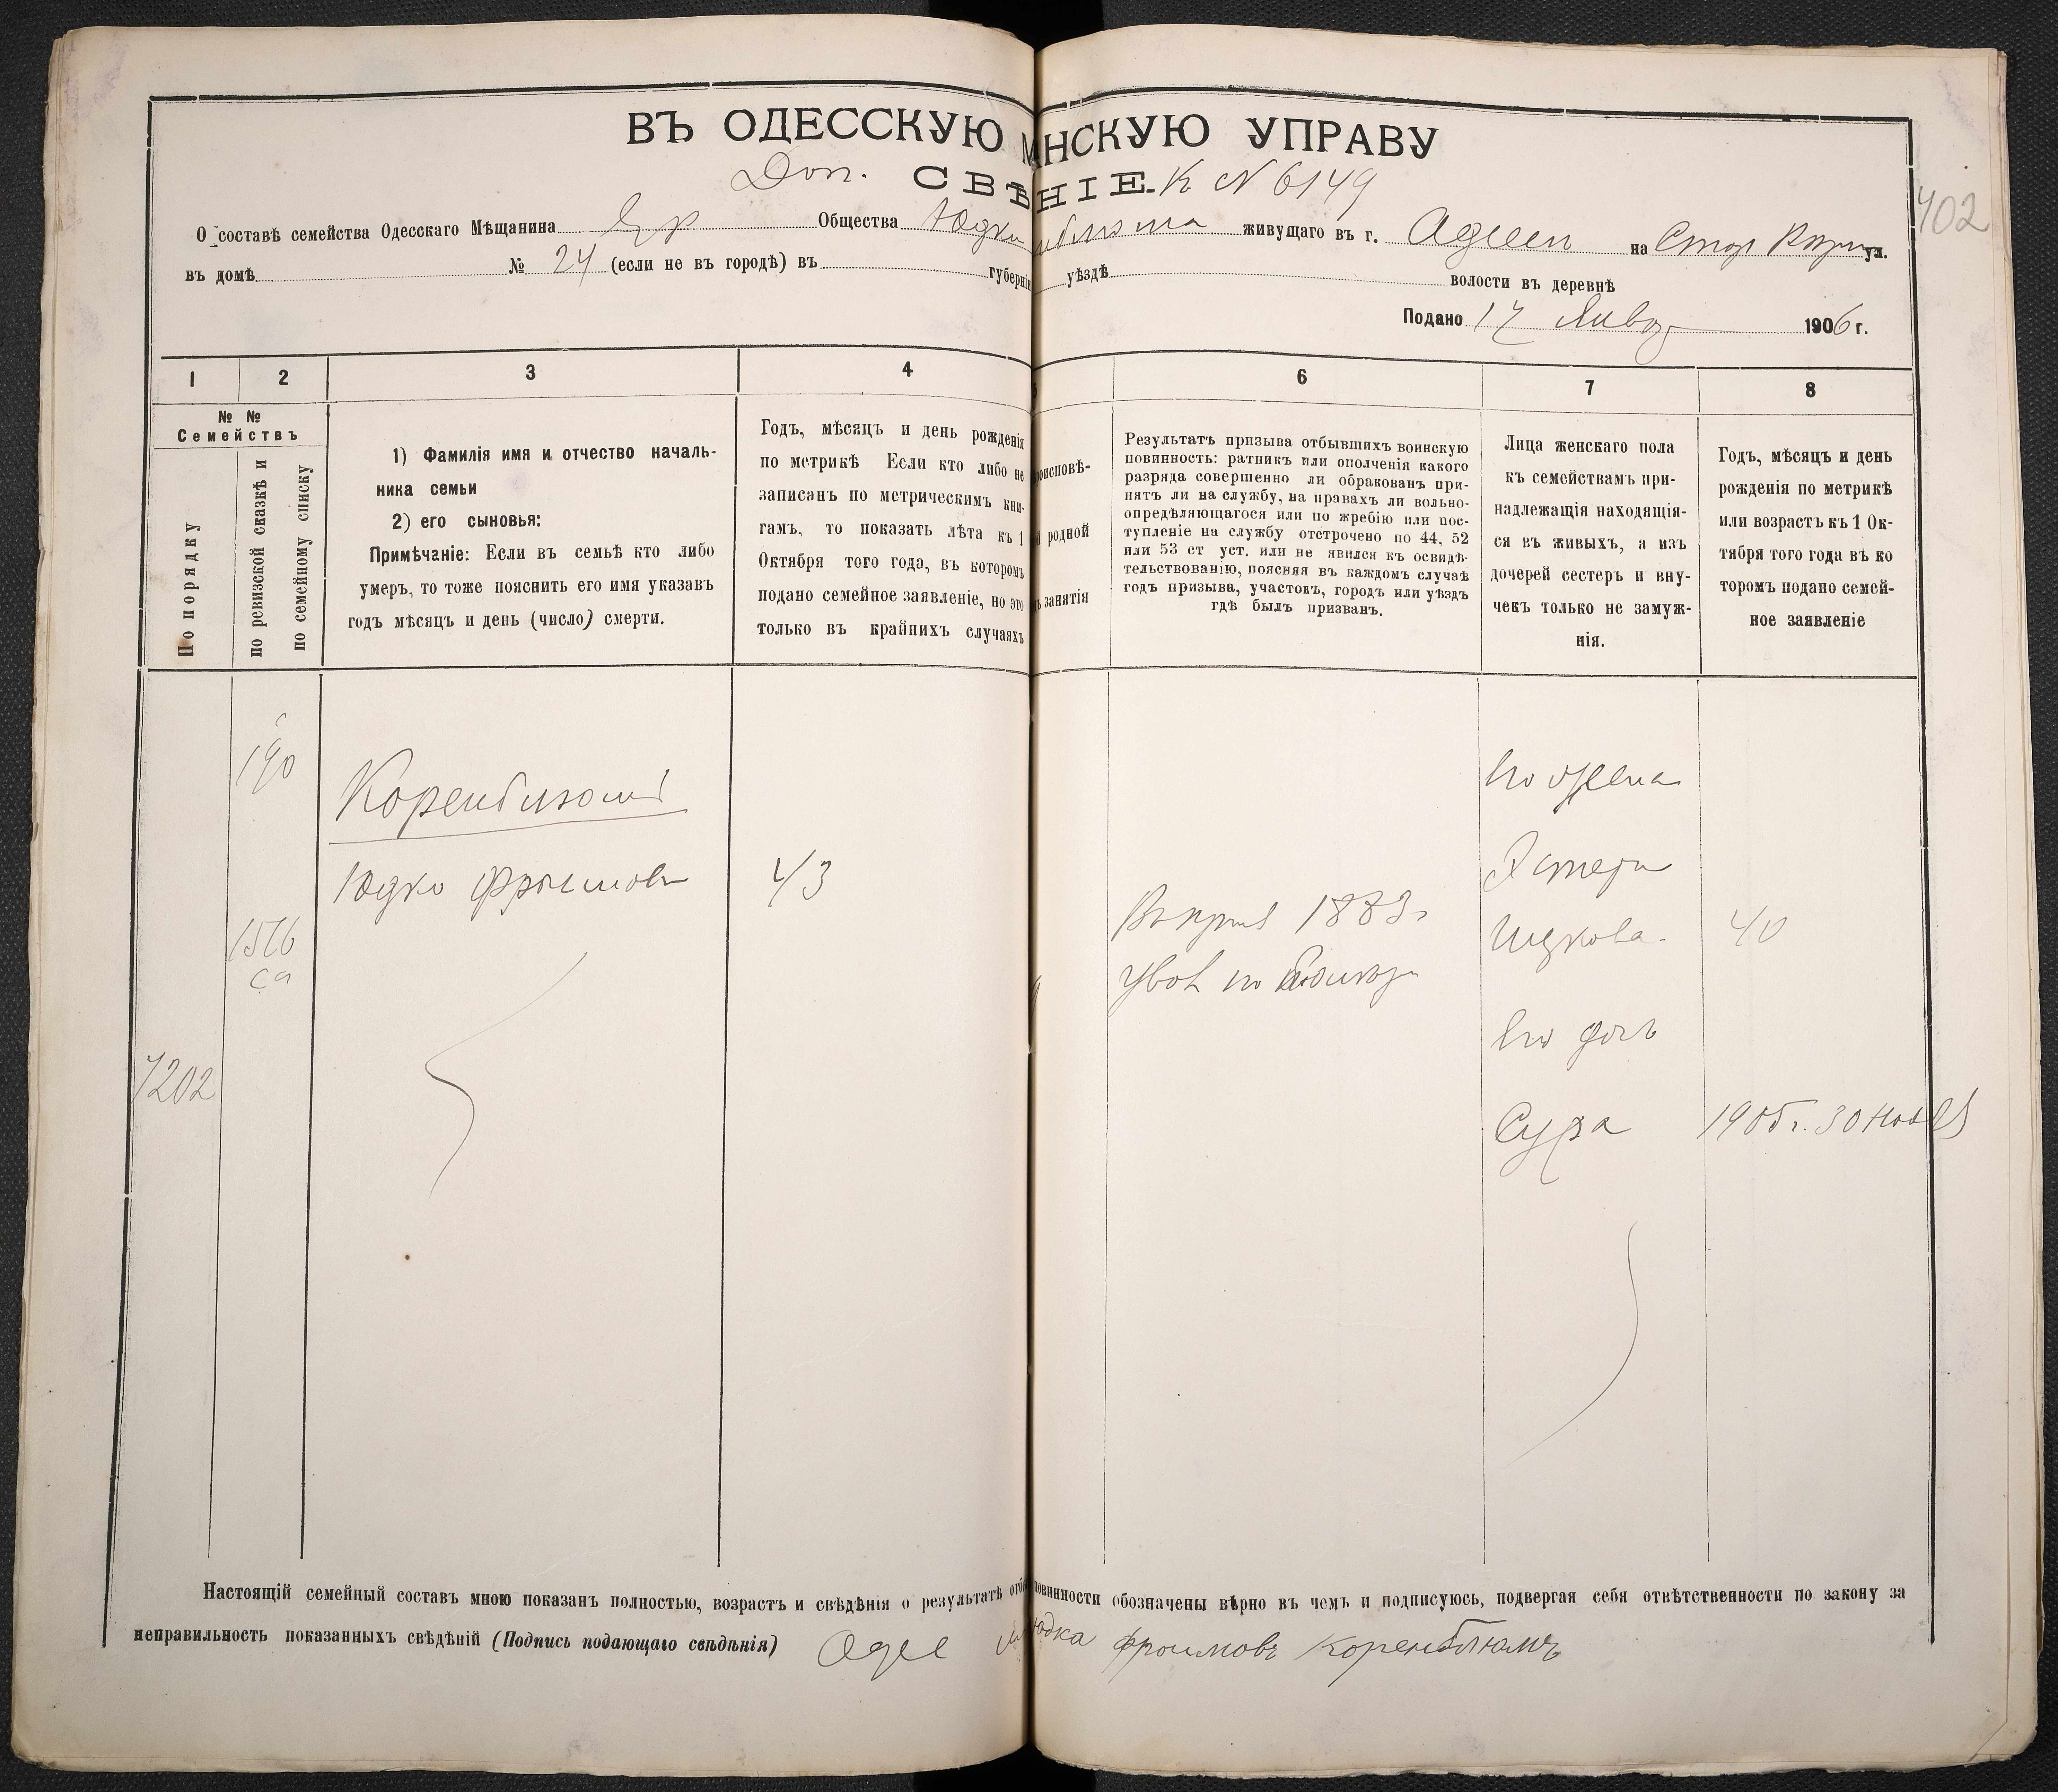 ВЪ ОДЕССКУЮ М НСКУЮ УПРАВУ
Доп. СВѢ НІЕ К N 6149
402
О составѣ семейства Одесскаго Мѣщанина Евр Общества Юдки блюма живущаго въ г. Одессы на Стор ул.
въ домѣ № 24 (если не въ городѣ) въ губерніи уѣздѣ волости въ деревнѣ
Подано 17 Январ 1906 г.
1 2 3 4 6 7 8
№ №
Семействъ
По порядку
по ревизской сказкѣ и
по семейному списку
1) Фамилія имя и отчество началь-
ника семьи
2) его сыновья:
Примѣчаніе: Если въ семьѣ кто либо
умеръ, то тоже пояснить его имя указавъ
годъ мѣсяцъ и день (число) смерти.
Годъ, мѣсяцъ и день рожденія
по метрикѣ Если кто либо не
записанъ по метрическимъ кни-
гамъ, то показать лѣта къ 1
Октября того года, въ которомъ
подано семейное заявленіе, но это
только въ крайнихъ случаяхъ
роисповѣ-
родной
занятія
Результатъ призыва отбывшихъ воинскую
повинность: ратникъ или ополченія какого
разряда совершенно ли обракованъ при-
нятъ ли на службу, на правахъ ли вольно-
опредѣляющагося или по жребію или пос-
тупленіе на службу отстрочено по 44, 52
или 53 ст уст. или не явился къ освидѣ-
тельствованію, поясняя въ каждомъ случаѣ
годъ призыва, участокъ, городъ или уѣздъ
гдѣ былъ призванъ.
Лица женскаго пола
къ семействамъ при-
надлежащія находящія-
ся въ живыхъ, а изъ
дочерей сестеръ и вну-
чекъ только не замуж-
нія.
Годъ, мѣсяцъ и день
рожденія по метрикѣ
или возрастъ къ 1 Ок-
тября того года въ ко
торомъ подано семей-
ное заявленіе
190
Коренблюмъ
Его жена
Юдко Фроимовъ 43
Эстера
1883г
Ицкова 40
Его дочь
7202
Сура 1905г. 30 Нояб
Настоящій семейный составъ мною показанъ полностью, возрастъ и свѣдѣнія о результатѣ отб повинности обозначены вѣрно въ чемъ и подписуюсь, подвергая себя отвѣтственности по закону за
неправильность показанныхъ свѣдѣній (Подпись подающаго свѣдѣнія) Одес Юдка Фроимовъ Коренблюмъ